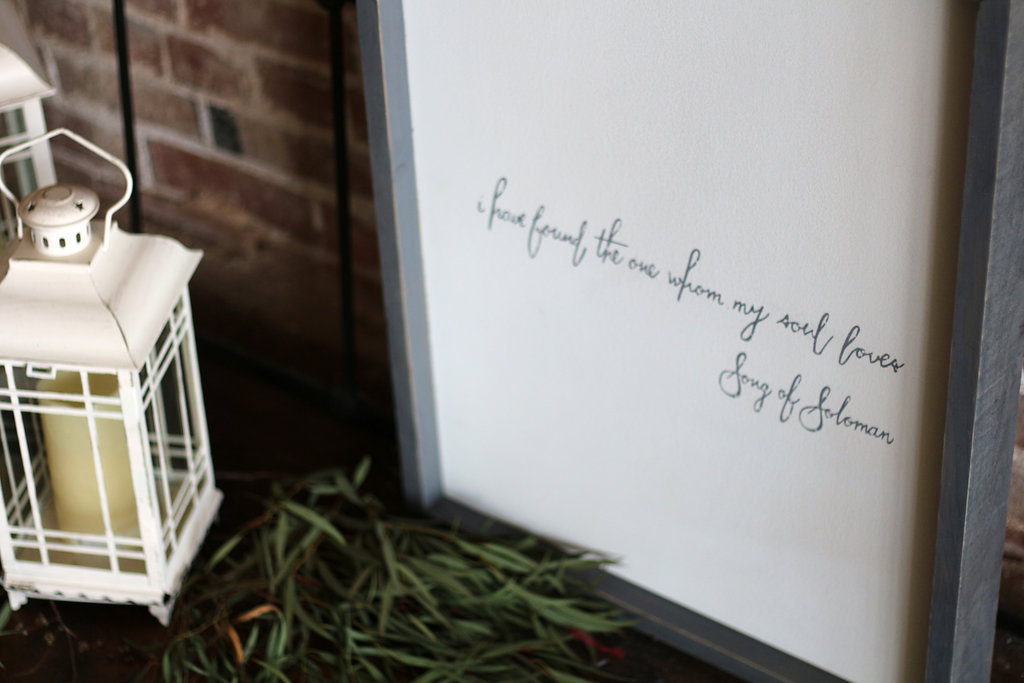 i have found the one whom my soul loves
Song of Soloman